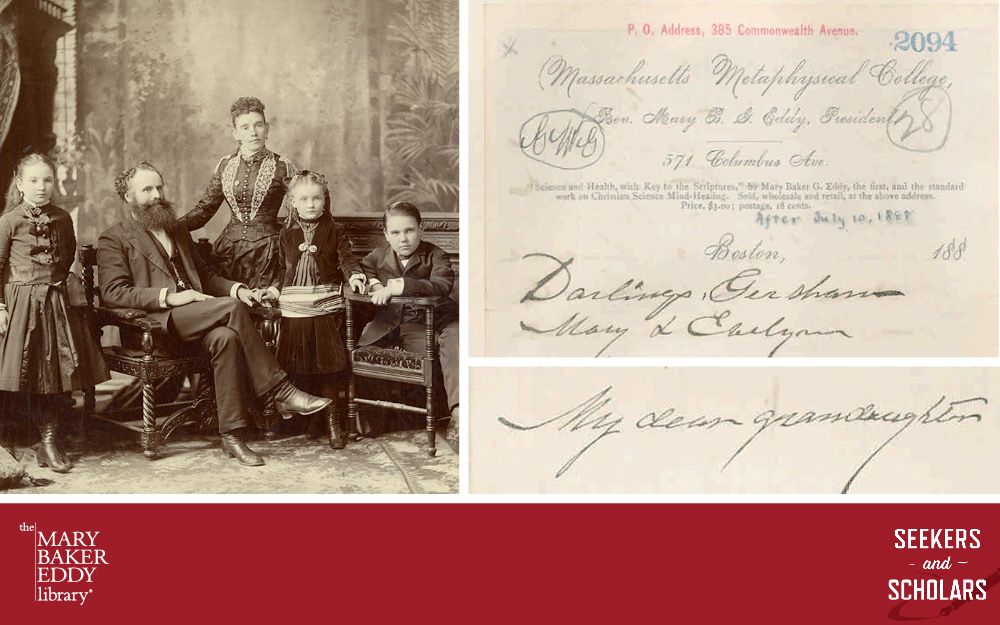 P. O. Address, 385 Commonwealth Avenue.
2094
Massachusetts Metaphysical College,
Rev. Mary B. G. Eddy, President
28
571 Columbus Ave.
"Science and Health, with Key to the Scriptures," by Mary Baker G. Eddy, the first, and the standard
work on Christian Science Mind-Healing. Sold, wholesale and retail, at the above address.
Price, $3.00; postage, 18 cents.
After July 10, 1888
Boston, 188
Darlings, Gershom
Mary & Evelyn
My dear grandaughter
the
MARY
BAKER
EDDY
library
SEEKERS
- and -
SCHOLARS